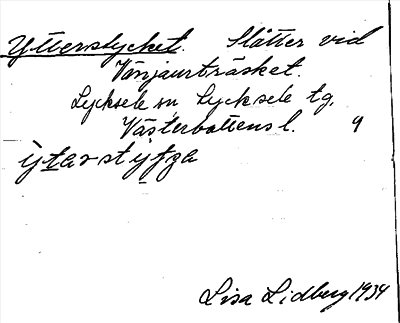 Ytterstycket. Slåtter vid
Vinjaurträsket.
Lycksele sn Lycksele tg.
Västerbottens l. 9
ỳtarstýtza
Lisa Lidberg 1934